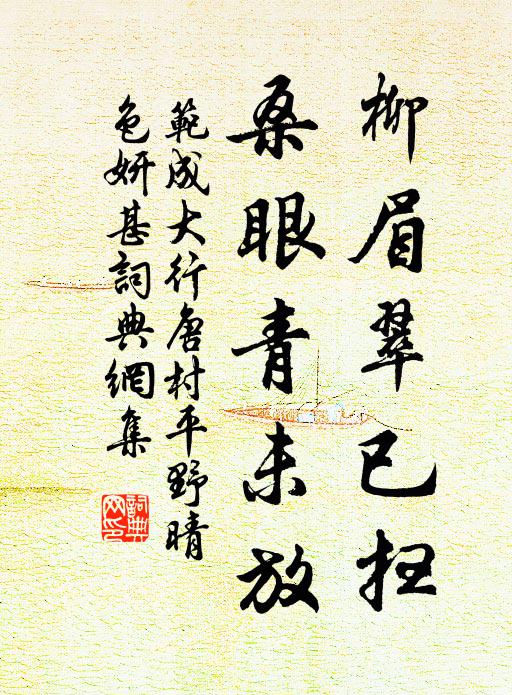 柳眉翠已扫
桑眼青未放
範成大行唐村平野晴
色妍甚詞典網集
詞典
网印